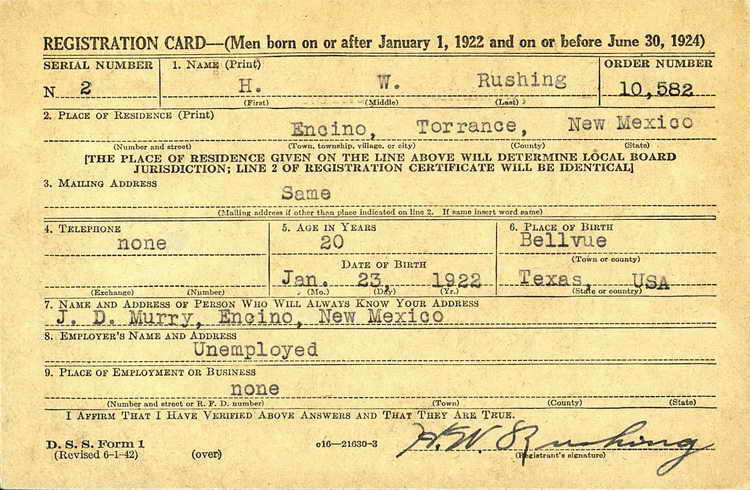 REGISTRATION CARD—(Men born on or after January 1, 1922 and on or before June 30, 1924)
SERIAL NUMBER 1. NAME (Print) ORDER NUMBER
N 2 H. W. Rushing 10,582
(First) (Middle) (Last)
2. PLACE OF RESIDENCE (Print)
Encino, Torrance, New Mexico
(Number and street) (Town, township, village, or city) (County) (State)
[THE PLACE OF RESIDENCE GIVEN ON THE LINE ABOVE WILL DETERMINE LOCAL BOARD
JURISDICTION; LINE 2 OF REGISTRATION CERTIFICATE WILL BE IDENTICAL]
3. MAILING ADDRESS
Same
(Mailing address if other than place indicated on line 2. If same insert word same)
4. TELEPHONE 5. AGE IN YEARS 6. PLACE OF BIRTH
none 20 Bellvue
(Town or county)
DATE OF BIRTH
Jan. 23, 1922 Texas, USA
(Exchange) (Number) (Mo.) (Day) (Yr.) (State or country)
7. NAME AND ADDRESS OF PERSON WHO WILL ALWAYS KNOW YOUR ADDRESS
J. D. Murry, Encino, New Mexico
8. EMPLOYER'S NAME AND ADDRESS
Unemployed
9. PLACE OF EMPLOYMENT OR BUSINESS
none
(Number and street or R. F. D. number) (Town) (County) (State)
I AFFIRM THAT I HAVE VERIFIED ABOVE ANSWERS AND THAT THEY ARE TRUE.
D. S. S. Form 1
(Revised 6-1-42) (over) o16—21630-3 H. W. Rushing
(Registrant's signature)